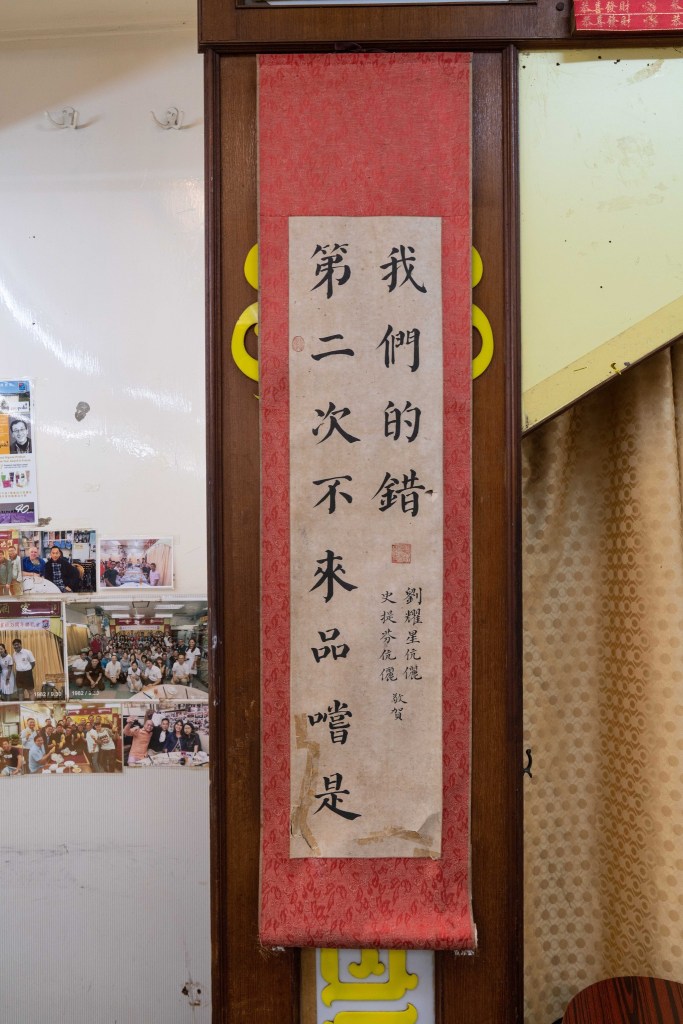 第二次不來品嚐是
我們的錯
劉耀星伉儷
史提芬伉儷
敬賀
恭喜發財